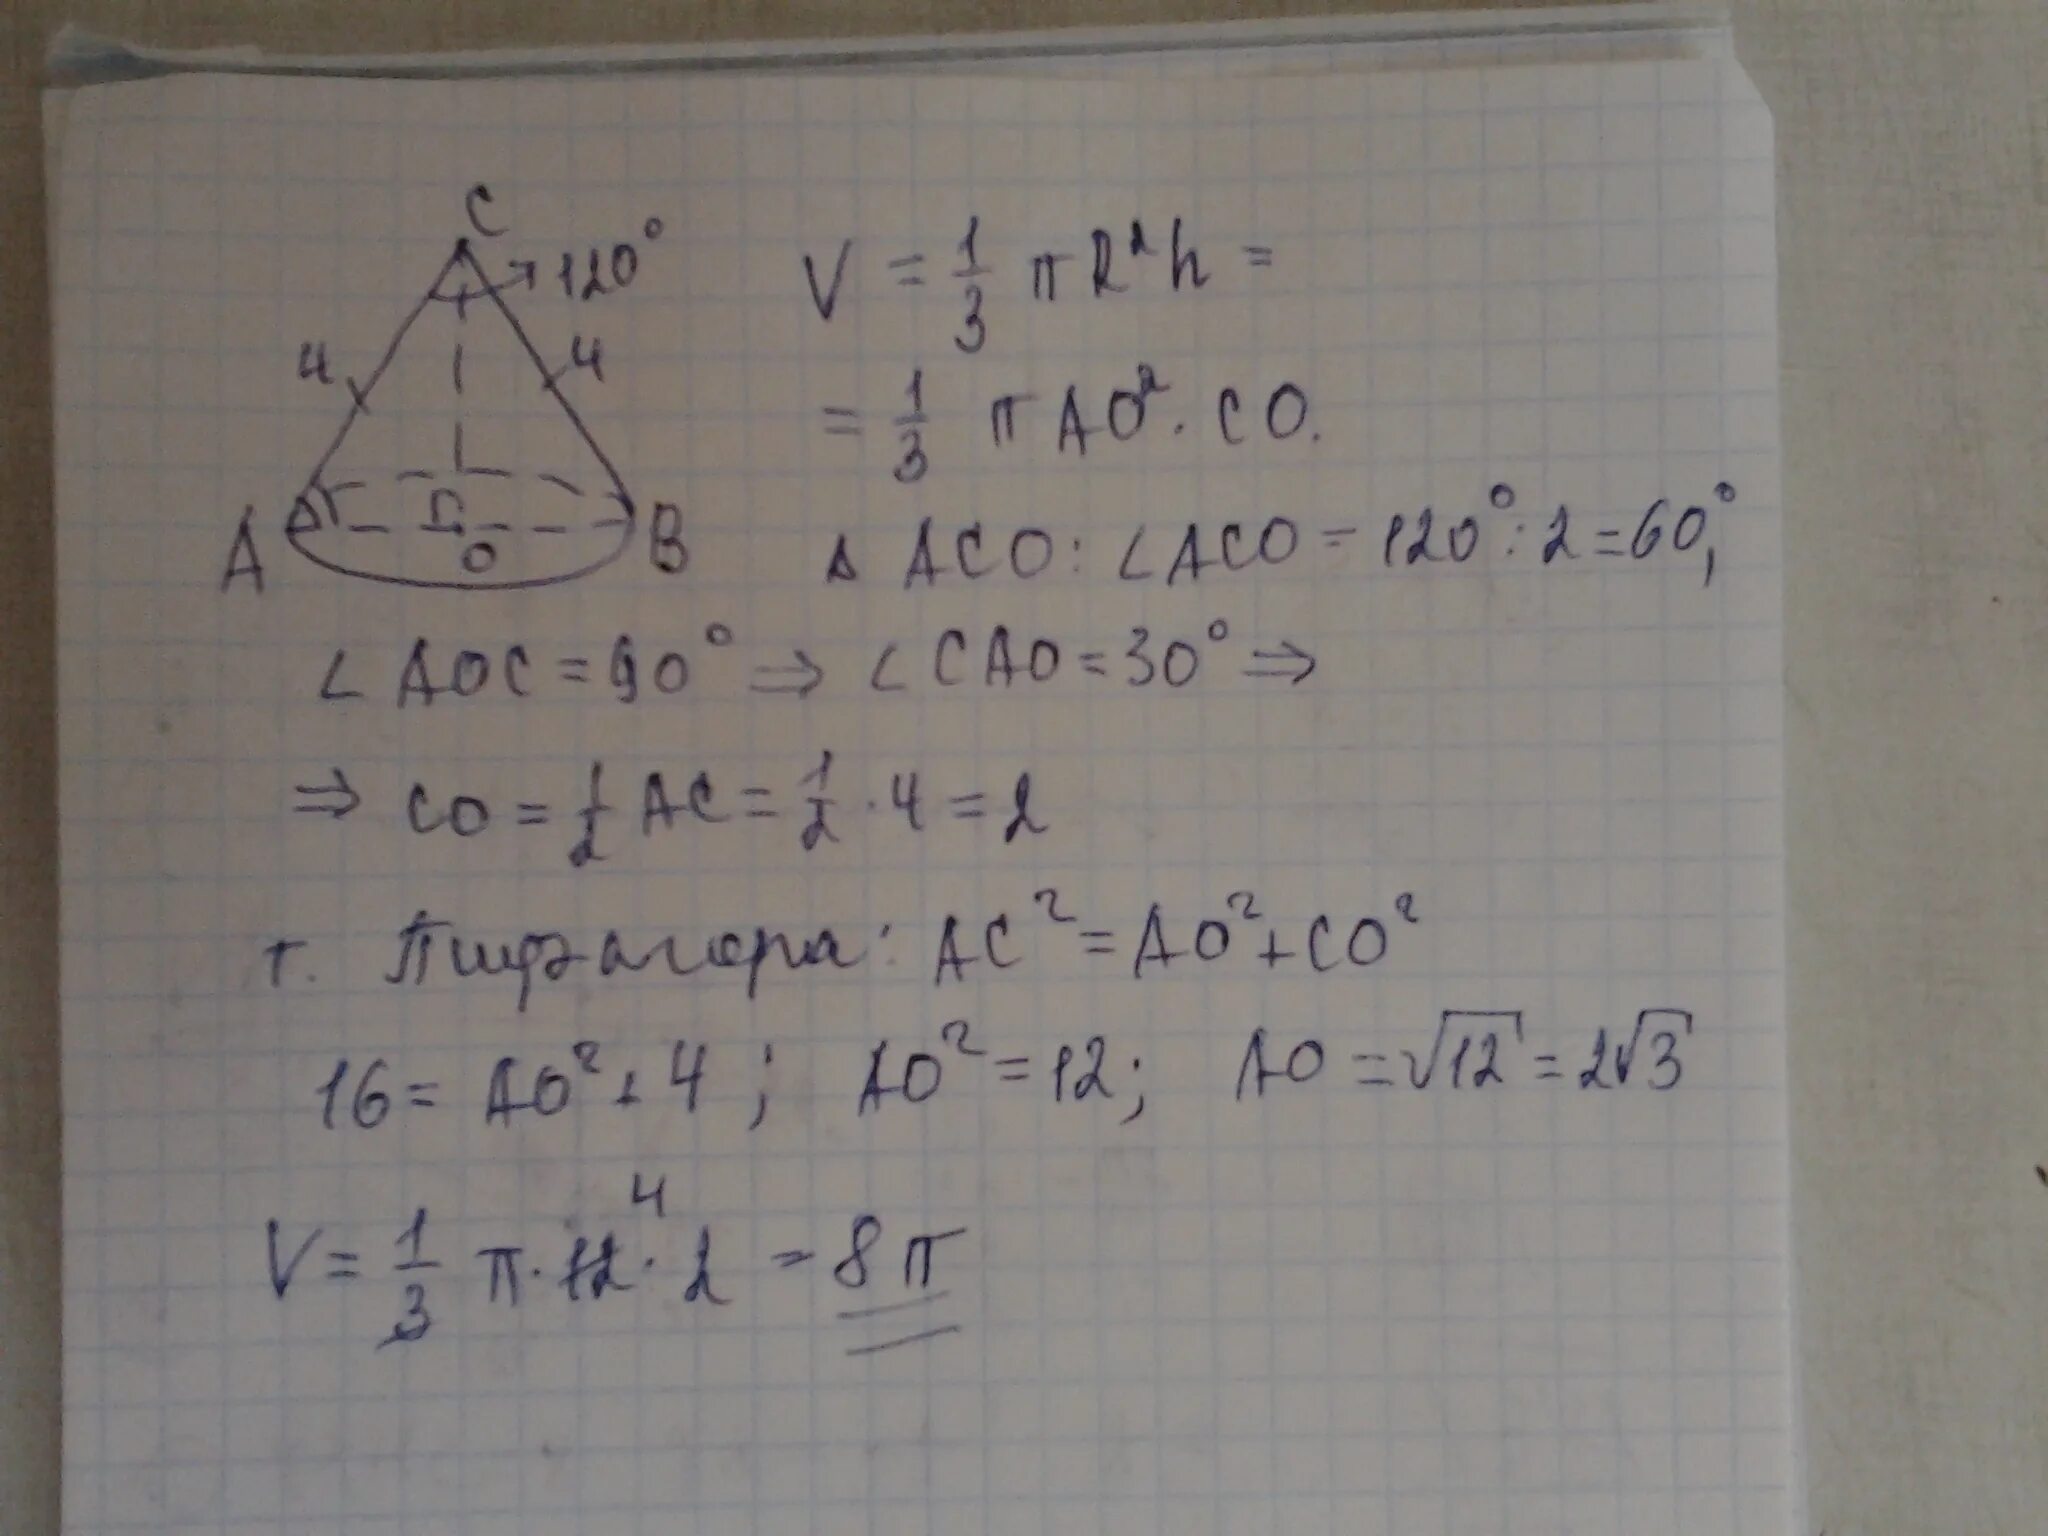 C
120°
4
4
A
O
B
V = 1/3 πR²h =
= 1/3 πAO² · CO.
Δ ACO: ∠ACO = 120° : 2 = 60°,
∠AOC = 90° ⇒ ∠CAO = 30° ⇒
⇒ CO = 1/2 AC = 1/2 · 4 = 2
т. Пифагора: AC² = AO² + CO²
16 = AO² + 4 ; AO² = 12; AO = √12 = 2√3
4
V = 1/3 π · 12 · 2 = 8π